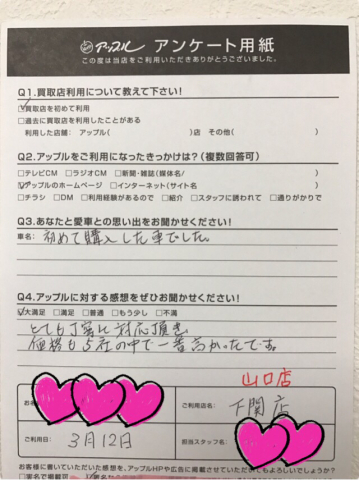 アップル アンケート用紙
この度は当店をご利用いただきありがとうございました。
Q1.買取店利用について教えて下さい!
☑買取店を初めて利用
□過去に買取店を利用したことがある
利用した店舗: アップル( )店 その他( )
Q2.アップルをご利用になったきっかけは?(複数回答可)
□テレビCM □ラジオCM □新聞・雑誌(媒体名/ )
☑アップルのホームページ □インターネット(サイト名 )
□チラシ □DM □利用経験があるので □紹介 □スタッフに誘われて □通りがかりで
Q3.あなたと愛車との思い出をお聞かせください!
車名: 初めて購入した車でした。
Q4.アップルに対する感想をぜひお聞かせください!
☑大満足 □満足 □普通 □もう少し □不満
とても丁寧に対応頂き
価格も5社の中で一番高かったです。
山口店
お名
ご利用店名: 下関店
ご利用日: 3月12日
担当スタッフ名:
お客様に書いていただいた感想を、アップルHPや広告に掲載させていただいてもよろしいでしょうか?